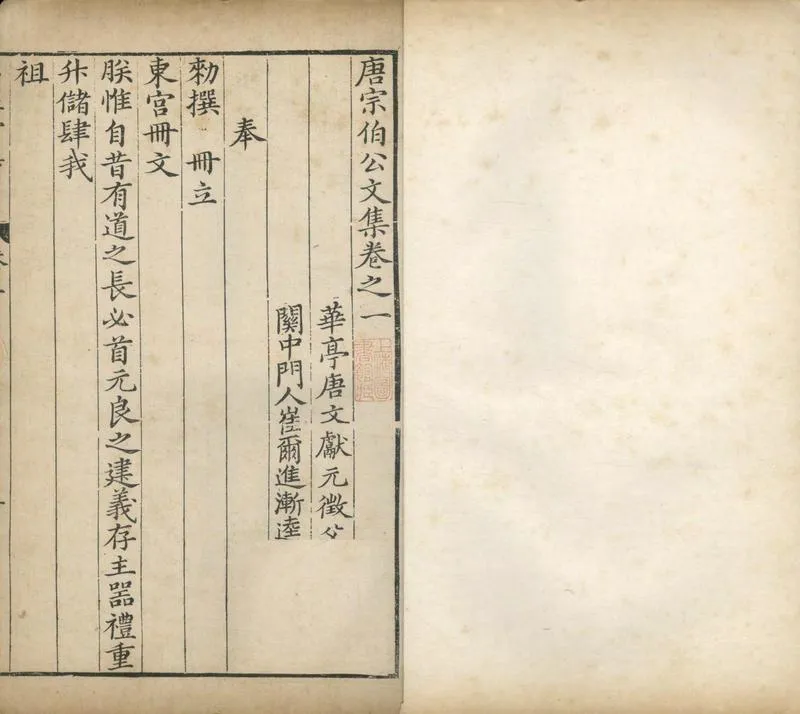 唐宗伯公文集卷之一
華亭唐文獻元徵父
關中門人崔爾進漸逵
奉
勑撰 冊立
東宮冊文
朕惟自昔有道之長必首元良之建義存主器禮重
升儲肆我
祖